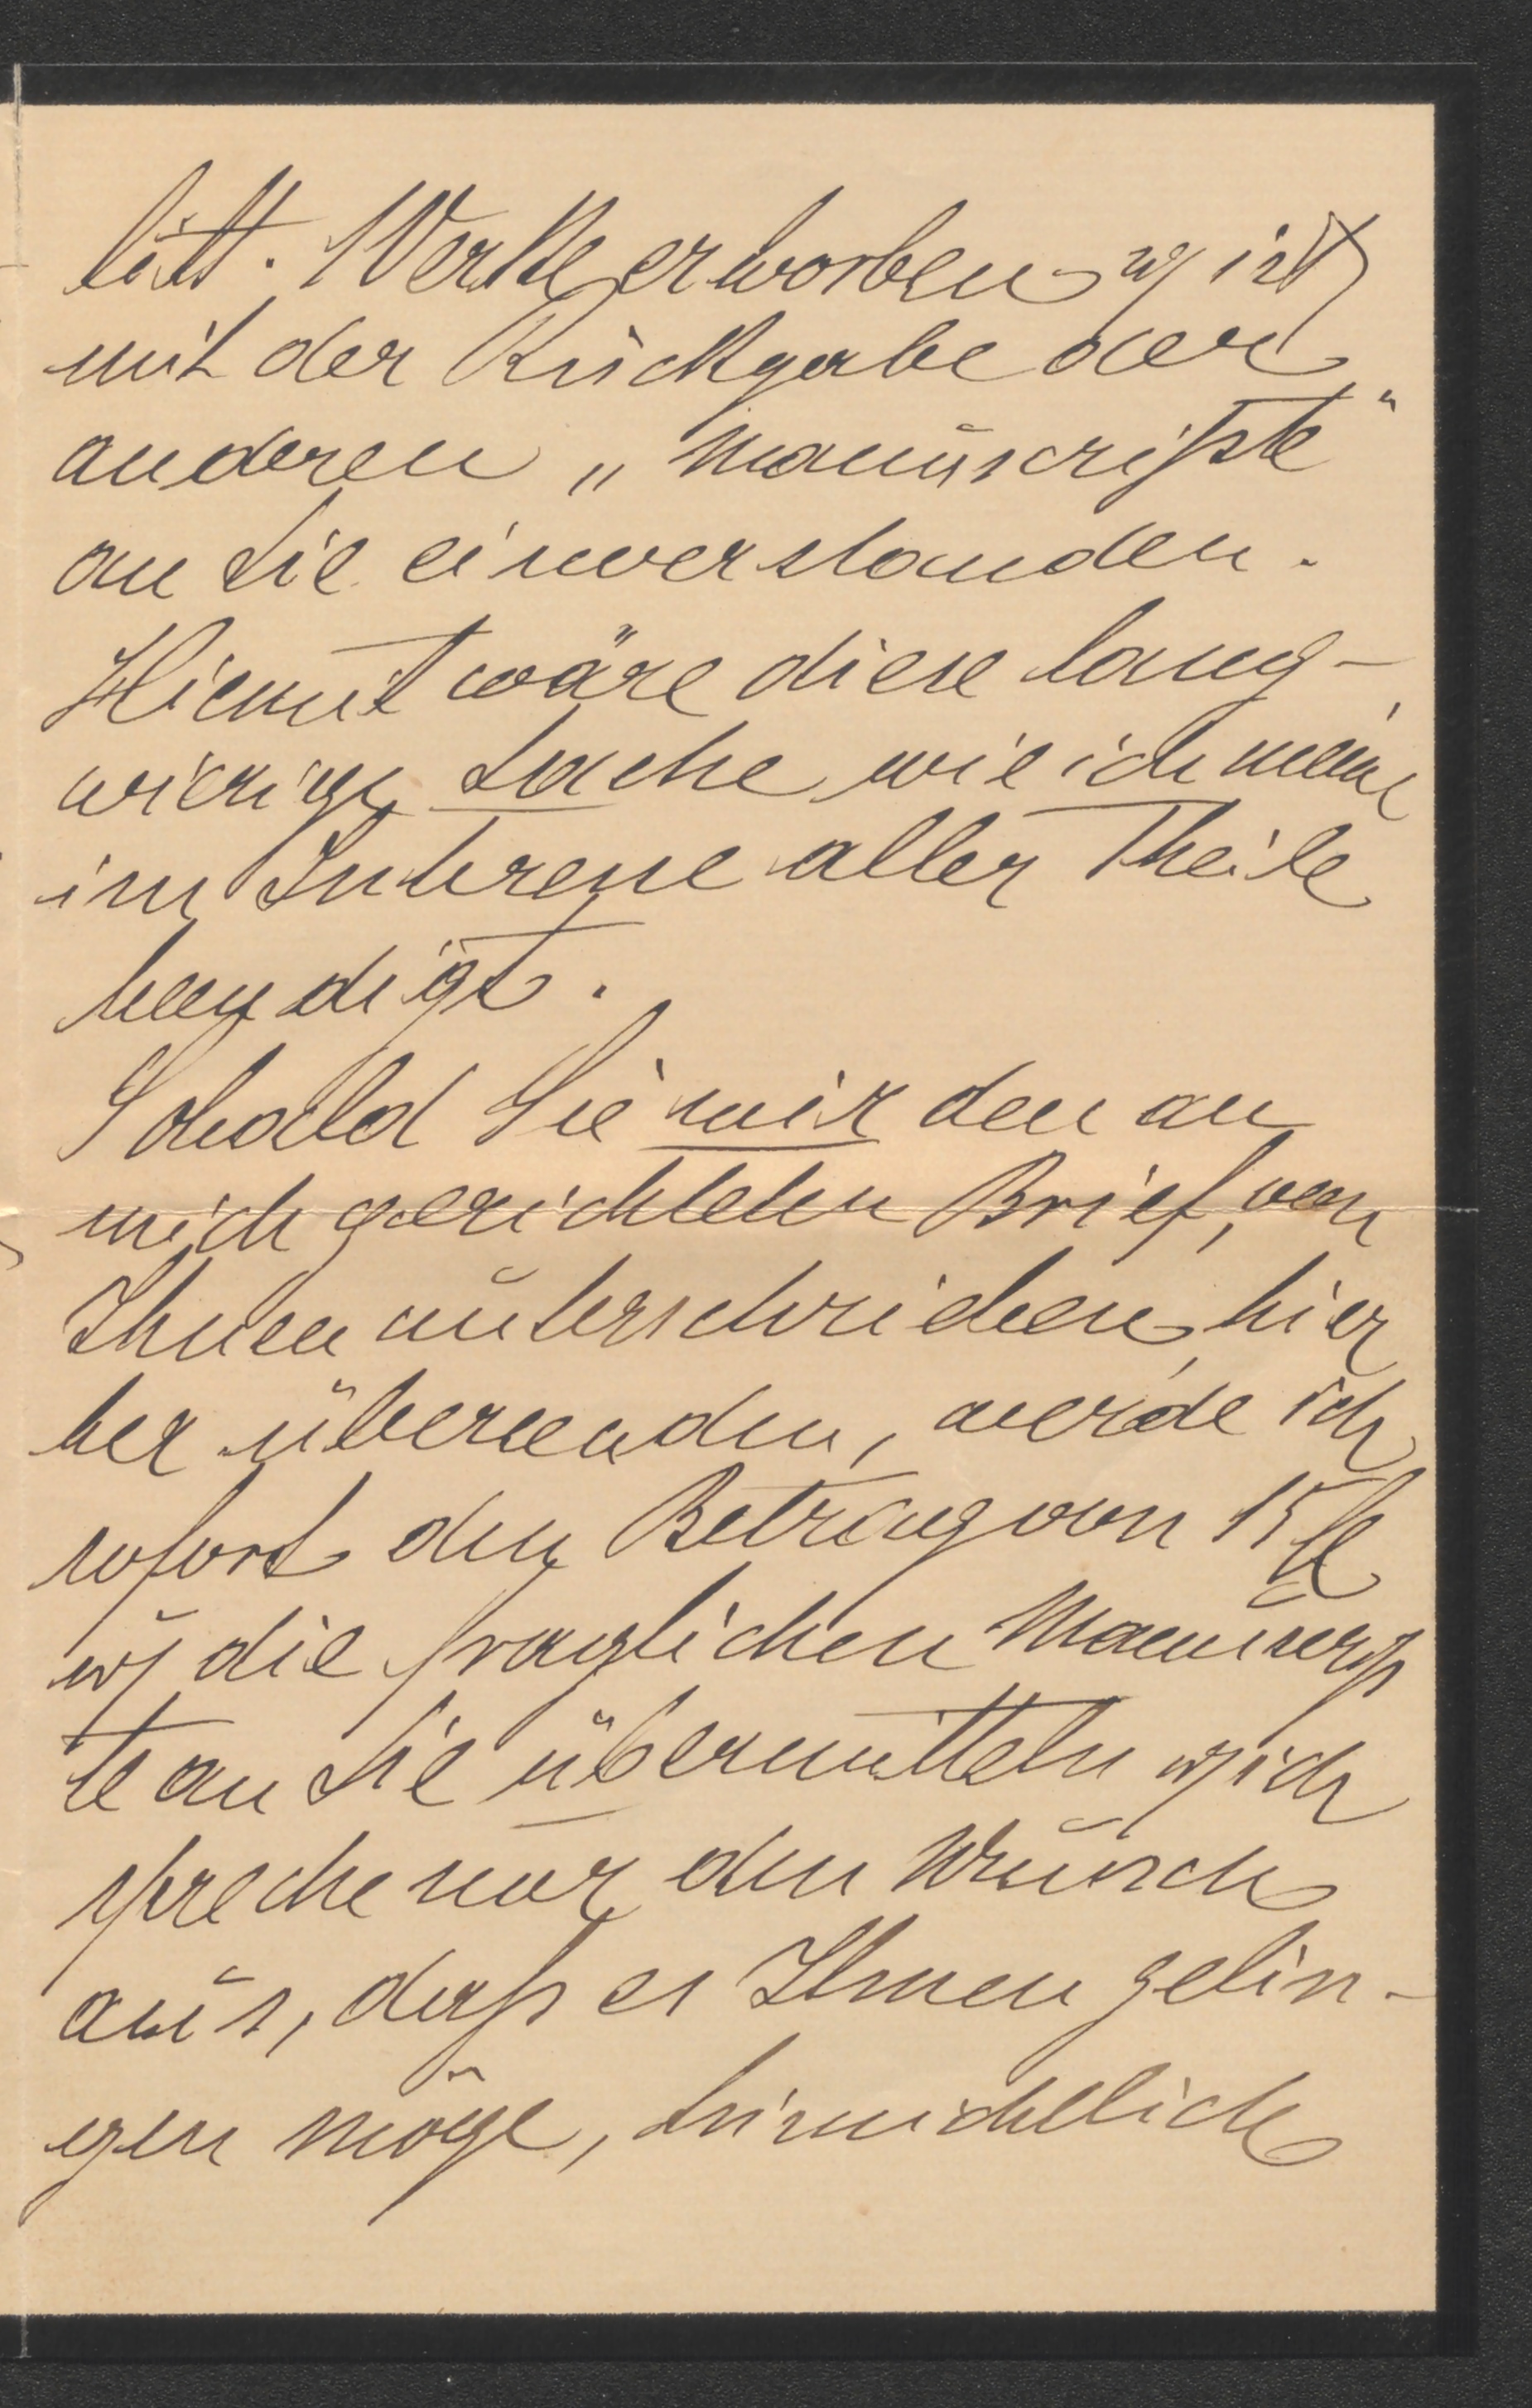 litt. Werke erworben u ist
mit der Rückgabe der
anderen „Manuscripte"
an Sie einverstanden.
Hiemit wäre diese lang-
wierige Sache wie ich meine
im Interesse aller Theile
beendigt.
Sobald Sie mir den an
mich gerichteten Brief, von
Ihnen unterschrieben hier
her übersenden, werde ich
sofort den Betrag von 15 fl
u die fraglichen Manuscrip
te an Sie übermitteln u ich
spreche nur den Wunsch
aus, daß es Ihnen gelin-
gen möge, hinsichtlich